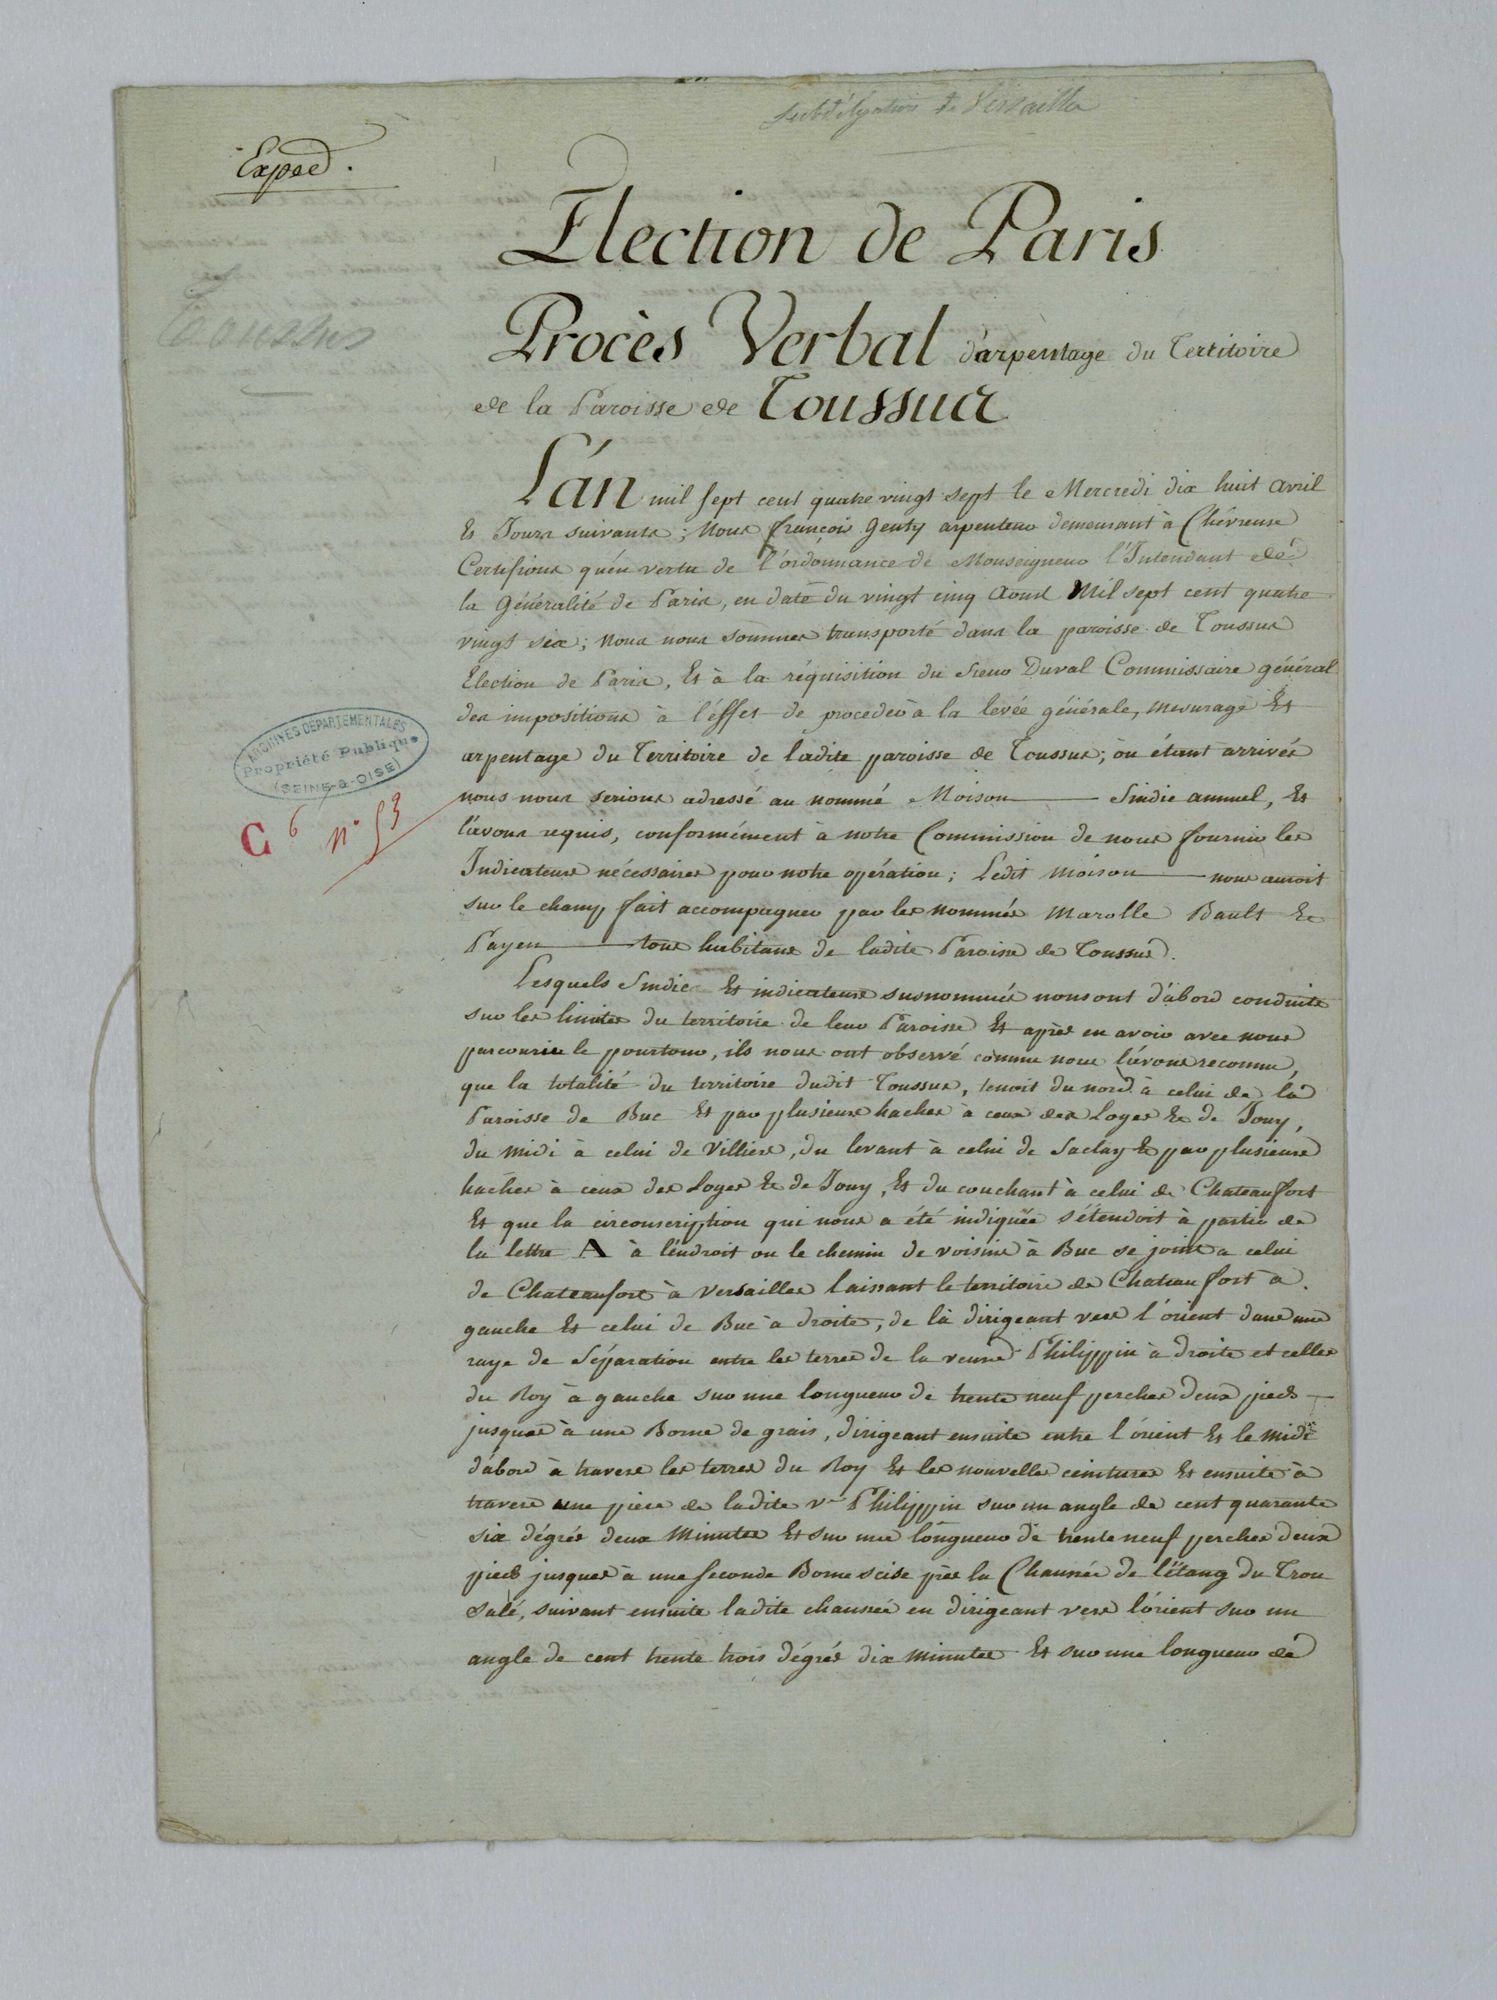 subdélégation de Versailles
Exped.
Toussus
Election de Paris
Procès Verbal d'arpentage du Territoire
de la Paroisse de Toussus
L'án mil sept cent quatre vingt sept le Mercredi dix huit avril
Et Jours suivants; Nous françois Genty arpenteur demeurant à Chévreuse
Certifions qu'en vertu de l'ordonnance de Monseigneur l'Intendant de
la Généralité de Paris, en date du vingt cinq Aoust Mil sept cent quatre
vingt six; nous nous sommes transporté dans la paroisse de Toussus
Election de Paris, Et à la réquisition du Sieur Duval Commissaire général
des impositions à l'éffet de proceder à la levée générale, mesurage Et
arpentage du Territoire de ladite paroisse de Toussus; ou étant arrivés
nous nous serions adressé au nommé Moison Sindic annuel, Et
l'avons requis, conformément à notre Commission de nous fournir les
Indicateurs nécessaires pour notre opération; Ledit Moison nous auroit
sur le champ fait accompagner par les nommés Marolle Bault Et
Payen tous habitans de ladite Paroisse de Toussus.
Lesquels Sindic Et indicateurs susnommés nous ont d'abord conduits
sur les limites du territoire de leur Paroisse Et après en avoir avec nous
parcouru le pourtour, ils nous ont observé comme nous l'avons reconnu,
que la totalité du territoire dudit Toussus, tenoit du nord à celui de la
Paroisse de Buc Et par plusieurs haches à ceux des Loges Et de Jouy,
du midi à celui de Villiers, du levant à celui de Saclay Et par plusieurs
haches à ceux des Loges Et de Jouy, Et du couchant à celui de Chateaufort
Et que la circonscription qui nous a été indiquée s'étendoit à partir de
la lettre A à l'endroit ou le chemin de voisins à Buc se joint a celui
de Chateaufort à Versailles laissant le territoire de Chateaufort à
gauche Et celui de Buc à droite, de là dirigeant vers l'orient dans une
raye de Séparation entre les terres de la veuve Philippin à droite et celles
du Roy à gauche sur une longueur de trente neuf perches deux pieds
jusques à une Borne de grais, dirigeant ensuite entre l'orient Et le midi
d'abord à travers les terres du Roy Et les nouvelles ceintures Et ensuite à
travers une piece de ladite Ve Philippin sur un angle de cent quarante
six dégrés deux Minutes Et sur une longueur de trente neuf perches deux
pieds jusques à une seconde Borne scise près la Chaussée de l'étang du Trou
Salé, suivant ensuite ladite chaussée en dirigeant vers l'orient sur un
angle de cent trente trois dégrés dix minutes Et sur une longueur de
ARCHIVES DÉPARTEMENTALES
Propriété Publique
(SEINE-&-OISE)
C 6 n° 53